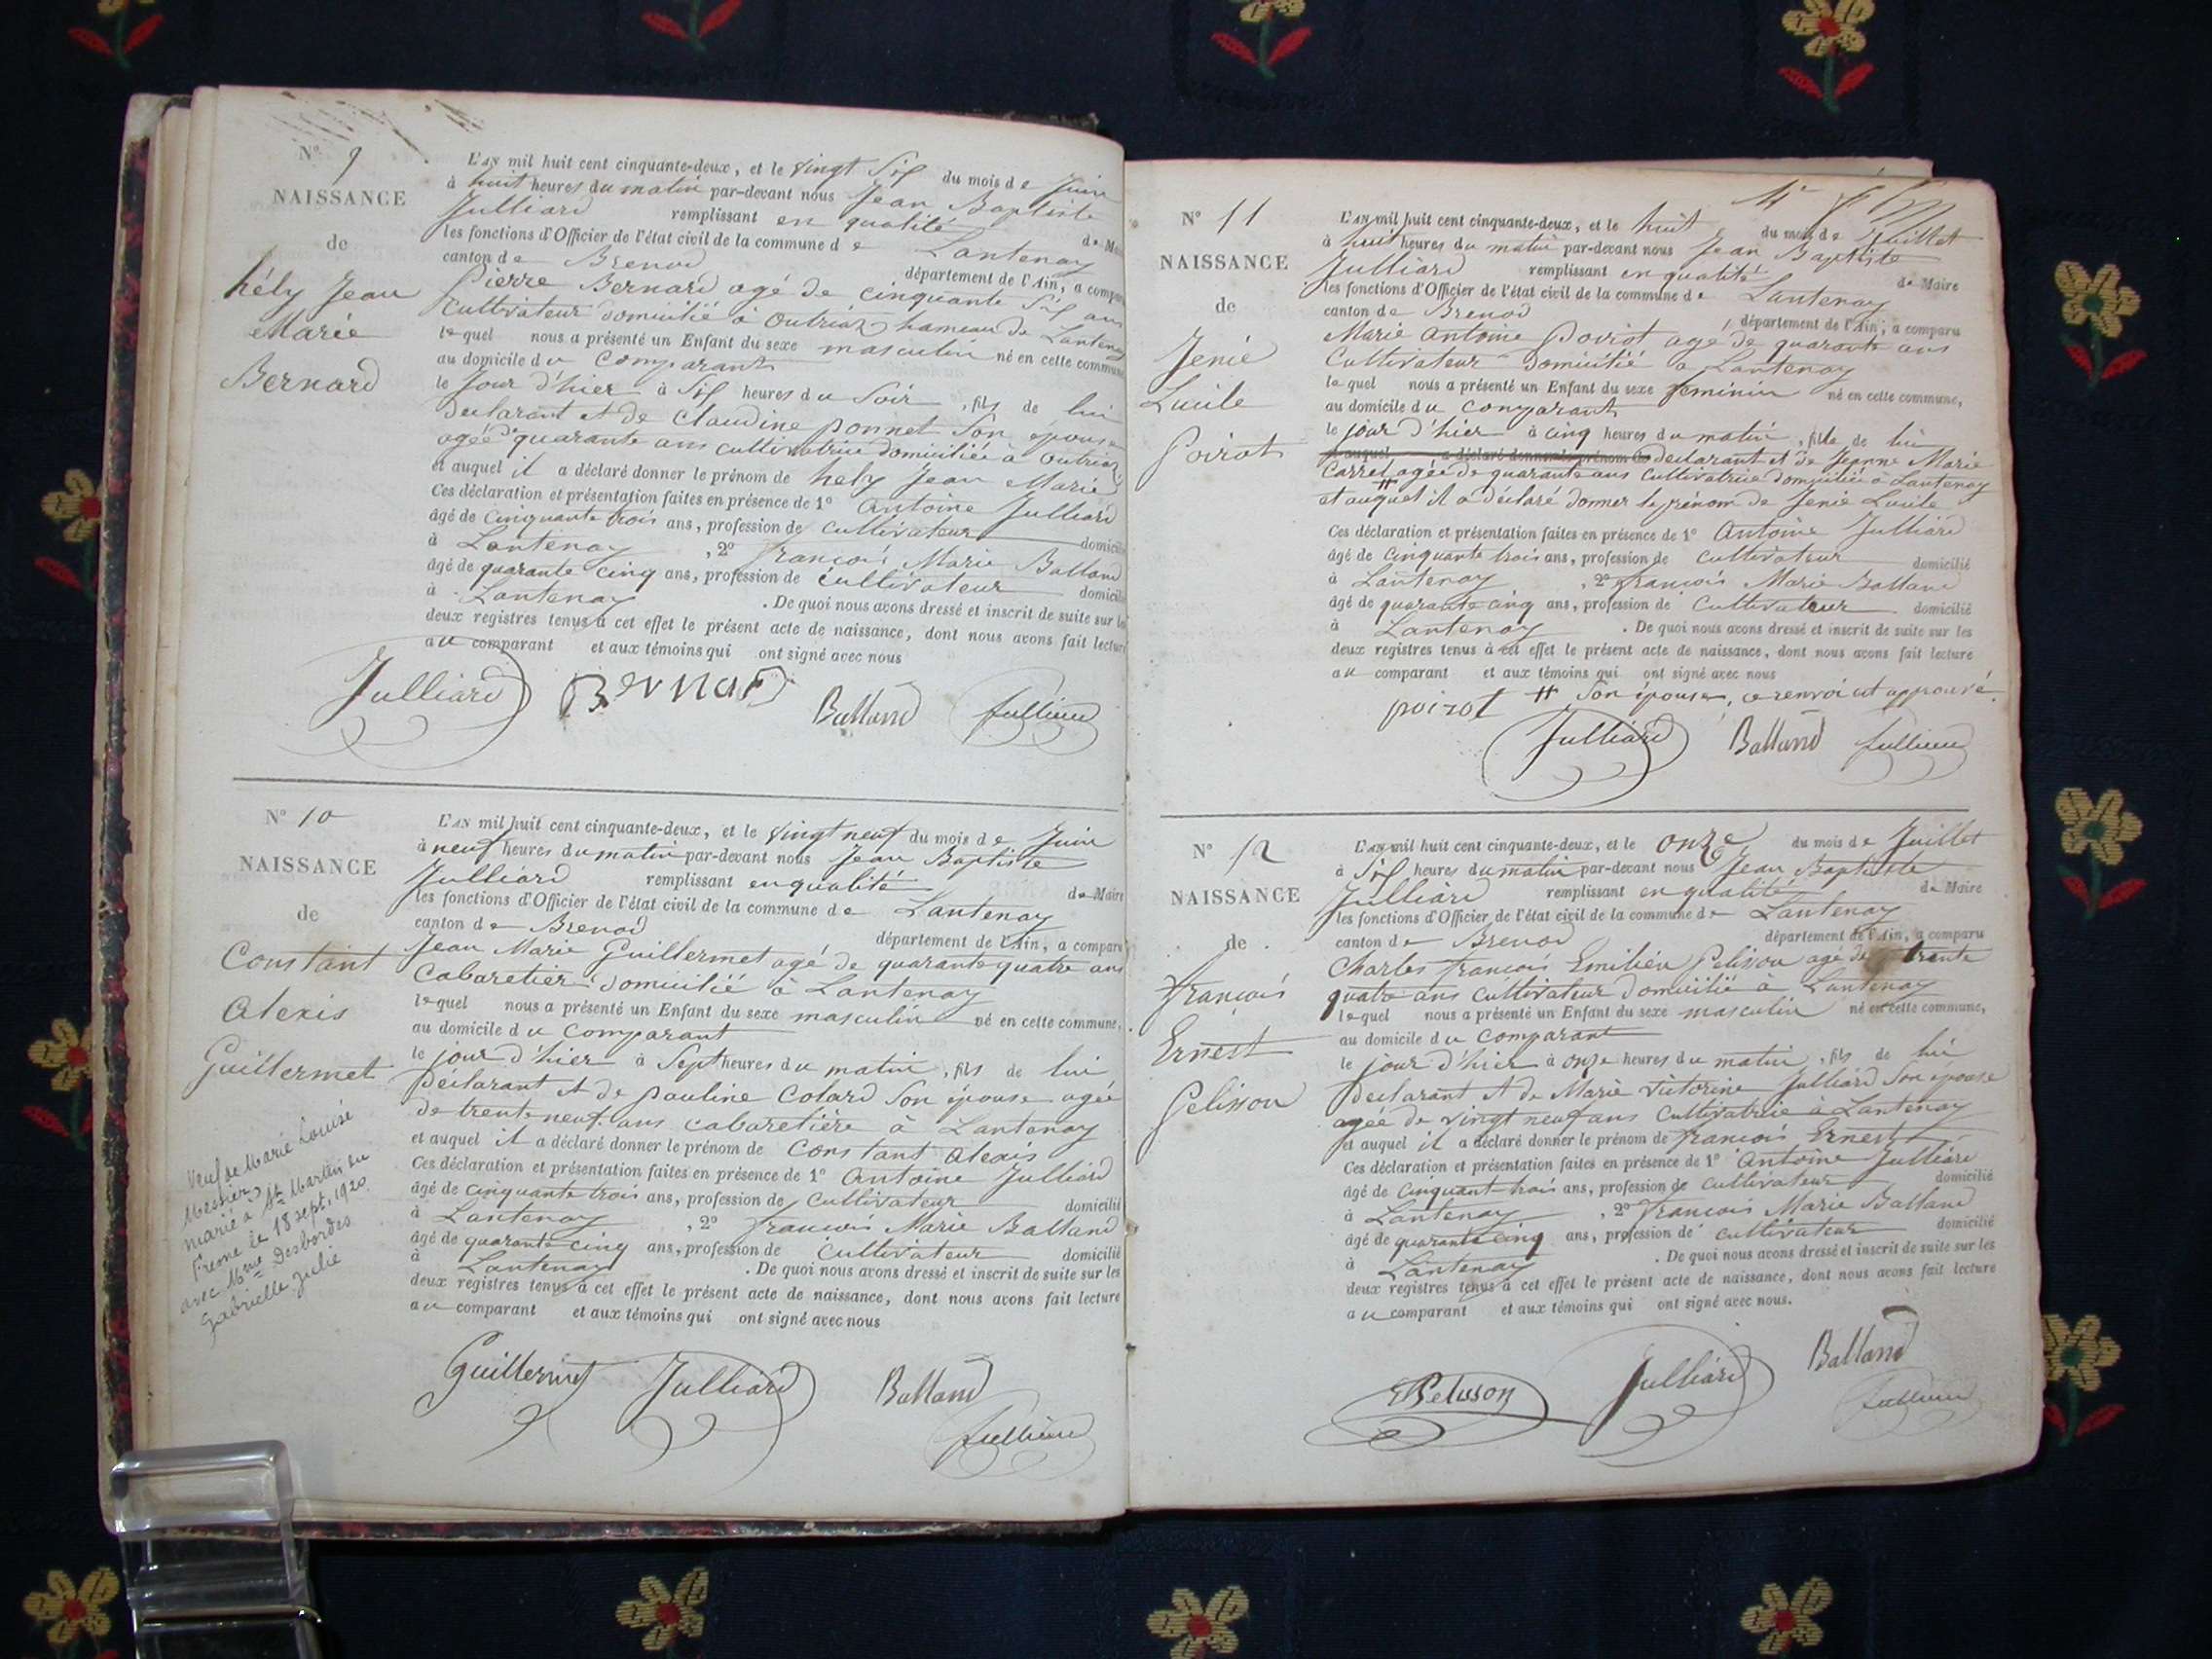 N° 9
NAISSANCE
de
hély Jean
Marie
Bernard
L'AN mil huit cent cinquante-deux, et le vingt six du mois de Juin
à huit heures du matin par-devant nous Jean Baptiste
Julliard remplissant en qualité de Mai
les fonctions d'Officier de l'état civil de la commune de Lantenay
canton de Brenod département de l'Ain, a compar
Pierre Bernard agé de cinquante six ans
cultivateur domicilié à Outriaz hameau de Lantenay
lequel nous a présenté un Enfant du sexe masculin né en cette commune
au domicile du comparant
le jour d'hier à six heures du soir, fils de lui
declarant et de Claudine ponnet son épouse
agée de quarante ans cultivatrice domiciliée à Outriaz
et auquel il a déclaré donner le prénom de hely Jean Marie
Ces déclaration et présentation faites en présence de 1° Antoine Julliard
âgé de cinquante trois ans, profession de cultivateur domicilié
à Lantenay, 2° françois Marie Balland
âgé de quarante cinq ans, profession de cultivateur domicilié
à Lantenay. De quoi nous avons dressé et inscrit de suite sur les
deux registres tenus à cet effet le présent acte de naissance, dont nous avons fait lecture
au comparant et aux témoins qui ont signé avec nous
Julliard Bernard Balland Jullien
N° 10
NAISSANCE
de
Constant
Alexis
Guillermet
Veuf de Marie Louise
Messier,
marié à St Martin du
Fresne le 18 sept. 1920
avec Mme Desbordes
Gabrielle Julie
L'AN mil huit cent cinquante-deux, et le vingt neuf du mois de Juin
à neuf heures du matin par-devant nous Jean Baptiste
Julliard remplissant en qualité de Maire
les fonctions d'Officier de l'état civil de la commune de Lantenay
canton de Brenod département de l'Ain, a comparu
Jean Marie Guillermet agé de quarante quatre ans
Cabaretier domicilié à Lantenay
lequel nous a présenté un Enfant du sexe masculin né en cette commune,
au domicile du comparant
le jour d'hier à sept heures du matin, fils de lui
déclarant et de pauline Colard son épouse agée
de trente neuf ans cabaretière à Lantenay
et auquel il a déclaré donner le prénom de Constant Alexis
Ces déclaration et présentation faites en présence de 1° Antoine Julliard
âgé de cinquante trois ans, profession de cultivateur domicilié
à Lantenay, 2° francois Marie Balland
âgé de quarante cinq ans, profession de cultivateur domicilié
à Lantenay. De quoi nous avons dressé et inscrit de suite sur les
deux registres tenus à cet effet le présent acte de naissance, dont nous avons fait lecture
au comparant et aux témoins qui ont signé avec nous
Guillermet Julliard Balland
Jullien
N° 11
NAISSANCE
de
Jenie
Lucile
Poirot
L'AN mil huit cent cinquante-deux, et le huit du mois de Juillet
à huit heures du matin par-devant nous Jean Baptiste
Julliard remplissant en qualité de Maire
les fonctions d'Officier de l'état civil de la commune de Lantenay
canton de Brenod, département de l'Ain, a comparu
Marie Antoine Poirot agé de quarante ans
Cultivateur domicilié à Lantenay
lequel nous a présenté un Enfant du sexe feminin né en cette commune,
au domicile du comparant
le jour d'hier à cinq heures du matin, fille de lui
declarant et de Jeanne Marie
Carrel agée de quarante ans cultivatrice domiciliée à Lantenay
et auquel il a déclaré donner le prénom de Jenie Lucile
Ces déclaration et présentation faites en présence de 1° Antoine Julliard
âgé de cinquante trois ans, profession de cultivateur domicilié
à Lantenay, 2° françois Marie Balland
âgé de quarante cinq ans, profession de cultivateur domicilié
à Lantenay. De quoi nous avons dressé et inscrit de suite sur les
deux registres tenus à cet effet le présent acte de naissance, dont nous avons fait lecture
au comparant et aux témoins qui ont signé avec nous
poirot # son épouse, ce renvoi est approuvé.
Julliard Balland Jullien
N° 12
NAISSANCE
de
François
Ernest
Pelisson
L'AN mil huit cent cinquante-deux, et le onze du mois de Juillet
à six heures du matin par-devant nous Jean Baptiste
Julliard remplissant en qualité de Maire
les fonctions d'Officier de l'état civil de la commune de Lantenay
canton de Brenod département de l'Ain, a comparu
Charles francois Emilien Pelisson agé de trente
quatre ans cultivateur domicilié à Lantenay
lequel nous a présenté un Enfant du sexe masculin né en cette commune,
au domicile du comparant
le jour d'hier à onze heures du matin, fils de lui
declarant et de Marie Victorine Julliard son épouse
agée de vingt neuf ans cultivatrice à Lantenay
et auquel il a déclaré donner le prénom de francois Ernest
Ces déclaration et présentation faites en présence de 1° Antoine Julliard
âgé de cinquant trois ans, profession de cultivateur domicilié
à Lantenay, 2° francois Marie Balland
âgé de quarante cinq ans, profession de cultivateur domicilié
à Lantenay. De quoi nous avons dressé et inscrit de suite sur les
deux registres tenus à cet effet le présent acte de naissance, dont nous avons fait lecture
au comparant et aux témoins qui ont signé avec nous.
EPelisson Julliard Balland
Jullien